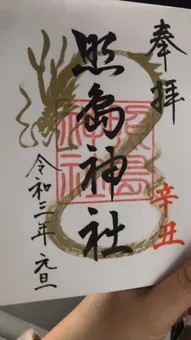 奉拝
辛丑
照島神社
令和三年 元旦